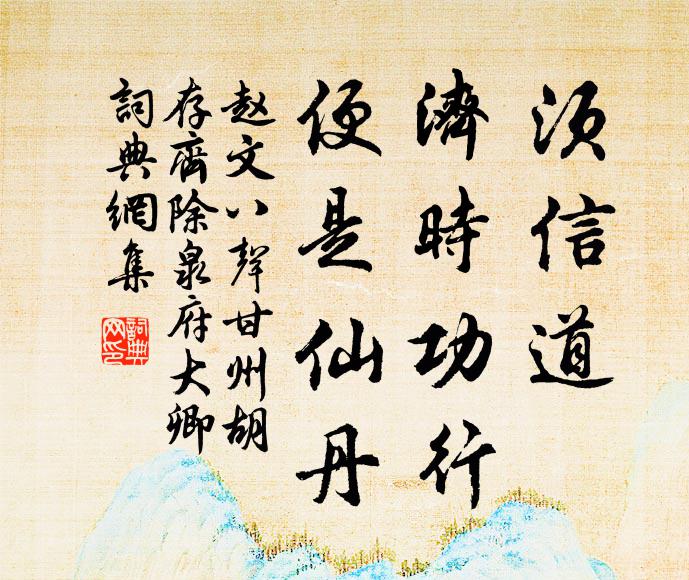 须信道
濟時功行
便是仙丹
赵文八聲甘州胡
存齋除泉府大卿
詞典網集
詞典
网印